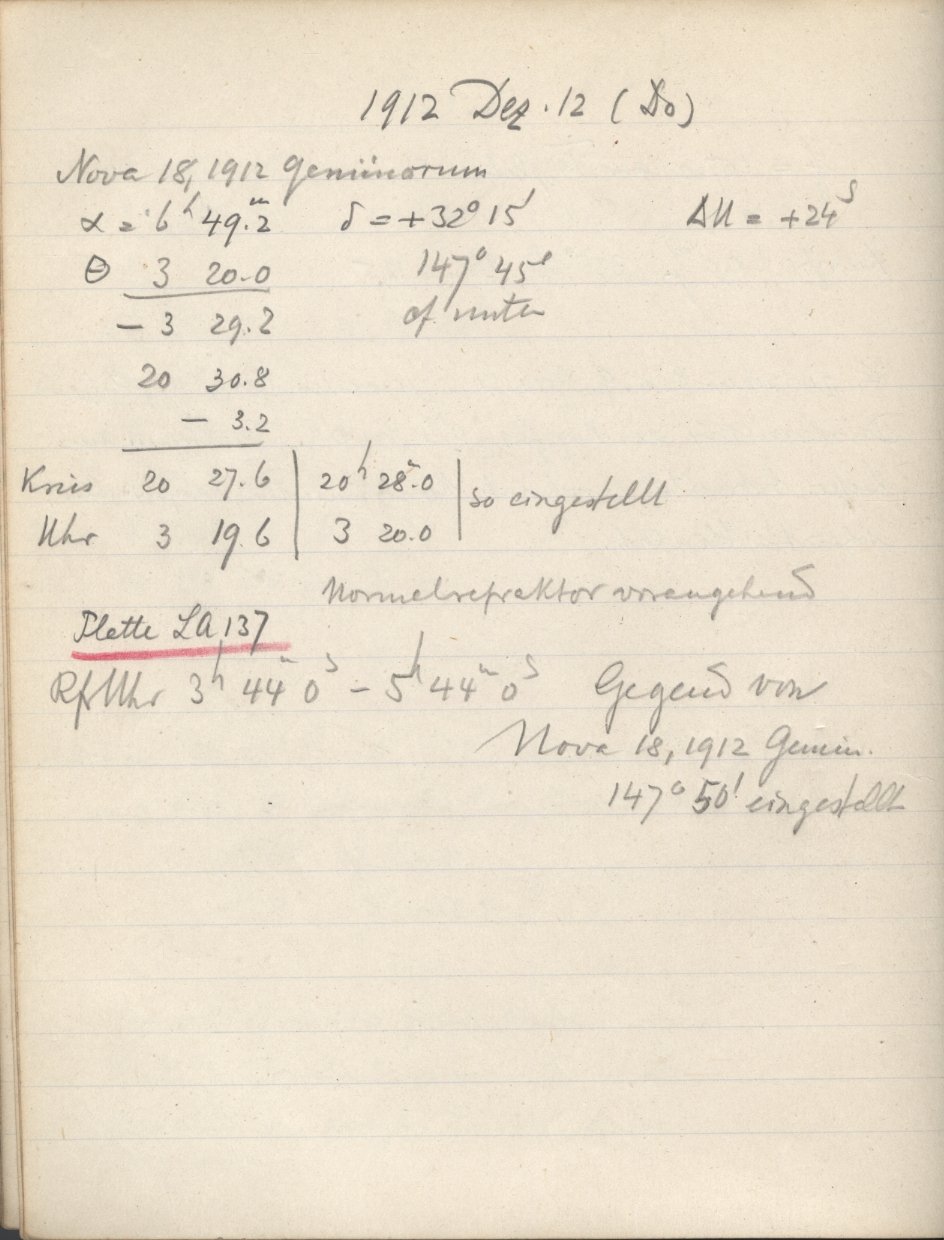 1912 Dez. 12 (Do)
Nova 18, 1912 Geminorum
α = 6ʰ 49.ᵐ2 δ = +32° 15' ΔU = +24ˢ
Θ 3 20.0 147° 45'
− 3 29.2 of unten
20 30.8
− 3.2
Kreis 20 27.6 | 20ʰ 28.ᵐ0 | so eingestellt
Uhr 3 19.6 | 3 20.0
Normalrefraktor vorangehend
Platte LA 137
Rf Uhr 3ʰ 44ᵐ 0ˢ − 5ʰ 44ᵐ 0ˢ Gegend von
Nova 18, 1912 Gemin.
147° 50' eingestellt